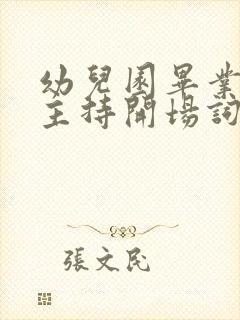 幼兒園畢業
主持開場詞
張文民